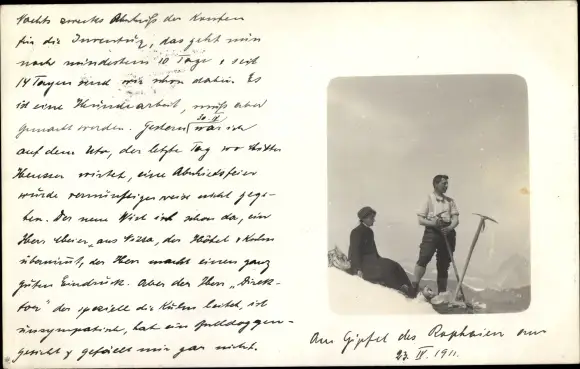 Nachts zwecks Abschluss der Konten
für die Inventur, das geht nun
noch mindestens 10 Tage, seit
14 Tagen sind wir schon dabei. Es
ist eine Hundearbeit, muss aber
gemacht werden. Gestern war ich
30. IV
auf dem Uto, der letzte Tag wo
wirtet, eine Abschiedsfeier
würde vernünftiger weise nicht gege-
ben. Der neue Wirt ist schon da, ein
Herr Meier, aus, der Hôtel &
übernimmt, der Herr macht einen ganz
guten Eindruck. Aber der Herr „Direk-
tor" der speziell die leitet, ist
unsympatisch, hat ein Bulldoggen-
gesicht & gefällt mir gar nicht.
Am Gipfel des am
23. IV. 1911.